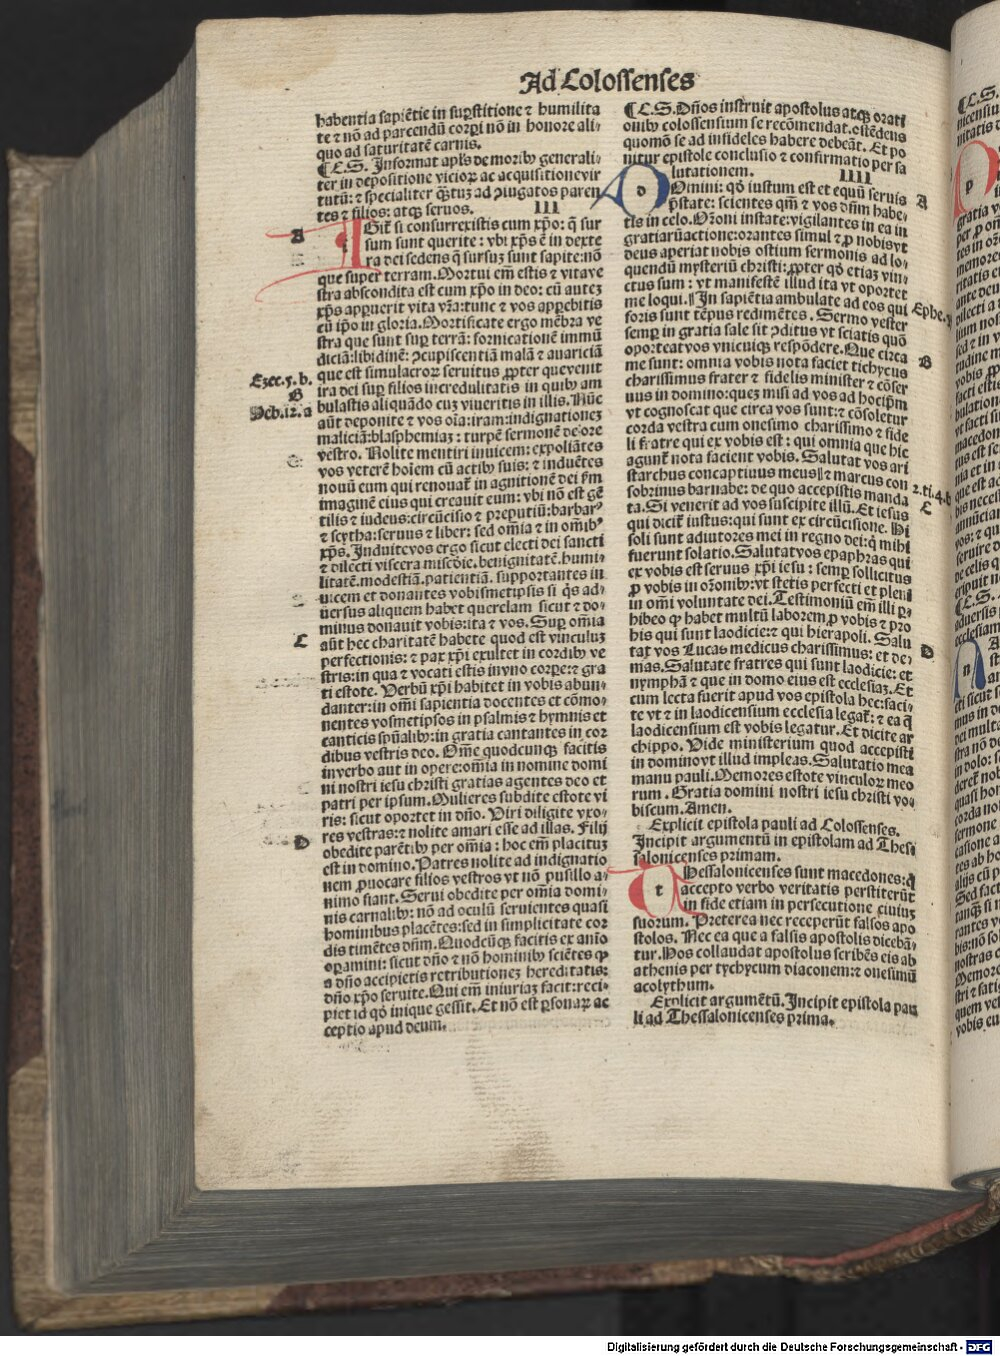 Ad Colossenses
habentia sapiẽtie in suꝑstitione ⁊ humilita
te ⁊ nõ ad parcendũ corpi nõ in honore ali⸗
quo ad saturitatẽ carnis.
¶C.S. Informat apłs de morib⁹ generali⸗
ter in depositione vicioꝝ ac acquisitione vir
tutũ: ⁊ specialiter q̃tuʒ ad ↄiugatos paren
tes ⁊ filios: atqꝫ seruos. III
A
IGit̃ si consurrexistis cum xp̃o: q̃ sur
sum sunt querite: vbi xp̃s ẽ in dexte
ra dei sedens q̃ sursuʒ sunt sapite: nõ
que super terram. Mortui em̃ estis ⁊ vita ve
stra abscondita est cum xp̃o in deo: cũ auteʒ
xp̃s apparuerit vita vr̃a: tunc ⁊ vos apꝑebitis
cũ ip̃o in gloria. Mortificate ergo mẽbra ve
stra que sunt suꝑ terrã: fornicationẽ immũ
diciã: libidinẽ: ↄcupiscentiã malã ⁊ auariciã
que est simulacroꝝ seruitus ꝓpter que venit
Ezec.5.b.
ira dei suꝑ filios incredulitatis in quib⁹ am
B
bulastis aliquãdo cuʒ viueritis in illis. Nũc
Heb.12.a
aũt deponite ⁊ vos oĩa: iram: indignationeʒ
maliciã: blasphemiaʒ: turpẽ sermonẽ de ore
vestro. Nolite mentiri inuicem: expoliãtes
vos veterẽ hoĩem cũ actib⁹ suis: ⁊ induẽtes
nouũ eum qui renouat̃ in agnitionẽ dei ẜm
imaginẽ eius qui creauit eum: vbi nõ est gẽ
tilis ⁊ iudeus: circũcisio ⁊ preputiũ: barbar⁹
⁊ scytha: seruus ⁊ liber: sed om̃ia ⁊ in om̃ib⁹
xp̃s. Induite vos ergo sicut electi dei sancti
⁊ dilecti viscera mis̃cdie. benignitatẽ. humi⸗
litatẽ. modestiã. patientiã. supportantes in
uicem et donantes vobismetipsis si q̃s ad⸗
uersus aliquem habet querelam sicut ⁊ do⸗
minus donauit vobis: ita ⁊ vos. Suꝑ om̃ia
C
aũt hec charitatẽ habete quod est vinculuʒ
perfectionis: ⁊ pax xp̃i exultet in cordib⁹ ve
stris: in qua ⁊ vocati estis in vno corꝑe: ⁊ gra
ti estote. Verbũ xp̃i habitet in vobis abun⸗
danter: in om̃i sapientia docentes et cõmo⸗
nentes vosmetipsos in psalmis ⁊ hymnis et
canticis spũalib⁹: in gratia cantantes in cor
dibus vestris deo. Om̃e quodcunqꝫ facitis
in verbo aut in opere: om̃ia in nomine domi
ni nostri iesu christi gratias agentes deo et
patri per ipsum. Mulieres subdite estote vi
ris: sicut oportet in dño. Viri diligite vxo⸗
D
res vestras: ⁊ nolite amari esse ad illas. Filij
obedite parẽtib⁹ per om̃ia: hoc em̃ placituʒ
est in domino. Patres nolite ad indignatio
nem ꝓuocare filios vestros vt nõ pusillo a⸗
nimo fiant. Serui obedite per om̃ia domi⸗
nis carnalib⁹: nõ ad oculũ seruientes quasi
hominibus placẽtes: sed in simplicitate cor
dis timẽtes dñm. Quodcũqꝫ facitis ex anĩo
oꝑamini: sicut dño ⁊ nõ hominib⁹ sciẽtes ꝙ
a dño accipietis retributioneʒ hereditatis:
dño xp̃o seruite. Qui em̃ iniuriaʒ facit: reci⸗
piet id qđ inique gessit. Et nõ est ꝑsonaꝝ ac
ceptio apud deum.
¶C.S. Dños instruit apostolus atqꝫ orati
onib⁹ colossensium se recõmendat. ostẽdens
quomõ se ad infideles habere debeãt. Et po
nitur epistole conclusio ⁊ confirmatio per sa
lutationem. IIII
DOmini: qđ iustum est et equũ seruis
A
p̃state: scientes qm̃ ⁊ vos dñm habe⸗
tis in celo. Or̃oni instate: vigilantes in ea in
gratiarũ actione: orantes simul ⁊ ꝓ nobis vt
deus aperiat nobis ostium sermonis ad lo⸗
quendũ mysteriũ christi: ꝓpter qđ etiaʒ vin⸗
ctus sum: vt manifestẽ illud ita vt oportet
me loqui. ¶In sapiẽtia ambulate ad eos qui
Ephe.
foris sunt: tẽpus redimẽtes. Sermo vester
semꝑ in gratia sale sit ↄditus vt sciatis quõ
oporteat vos vnicuiqꝫ respõdere. Que circa
B
me sunt: omnia vobis nota faciet tichycus
charissimus frater ⁊ fidelis minister ⁊ cõser
uus in domino: queʒ misi ad vos ad hoc ip̃m
vt cognoscat que circa vos sunt: ⁊ cõsoletur
corda vestra cum onesimo charissimo ⁊ fide
li fratre qui ex vobis est: qui omnia que hic
agunt̃ nota facient vobis. Salutat vos ari
starchus concaptiuus meus ⁊ marcus con
2.ti.4.b
sobrinus barnabe: de quo accepistis manda
C
ta. Si venerit ad vos suscipite illũ. Et iesus
qui dicit̃ iustus: qui sunt ex circũcisione. Hi
soli sunt adiutores mei in regno dei: q̃ mihi
fuerunt solatio. Salutat vos epaphras qui
ex vobis est seruus xp̃i iesu: semꝑ sollicitus
ꝓ vobis in or̃onib⁹: vt stetis perfecti et pleni
in om̃i voluntate dei. Testimoniũ em̃ illi ꝑ⸗
hibeo ꝙ habet multũ laborem ꝓ vobis ⁊ pro
his qui sunt laodicie: ⁊ qui hierapoli. Salu
D
tat vos Lucas medicus charissimus: et de⸗
mas. Salutate fratres qui sunt laodicie: et
nymphã ⁊ que in domo eius est ecclesiaʒ. Et
cum lecta fuerit apud vos epistola hec: faci⸗
te vt ⁊ in laodicensium ecclesia legat̃: ⁊ ea q̃
laodicensium est vobis legatur. Et dicite ar
chippo. Vide ministerium quod accepisti
in domino vt illud impleas. Salutatio mea
manu pauli. Memores estote vinculoꝝ meo
rum. Gratia domini nostri iesu christi vo⸗
biscum. Amen.
Explicit epistola pauli ad Colossenses.
Incipit argumentũ in epistolam ad Thes⸗
salonicenses primam.
THessalonicenses sunt macedones: q̃
accepto verbo veritatis perstiterũt
in fide etiam in persecutione ciuiuʒ
suorum. Preterea nec receperũt falsos apo
stolos. Nec ea que a falsis apostolis dicebã⸗
tur. Hos collaudat apostolus scribẽs eis ab
athenis per tychycum diaconem: ⁊ onesimũ
acolythum.
Explicit argumẽtũ. Incipit epistola pau
li ad Thessalonicenses prima.
Digitalisierung gefördert durch die Deutsche Forschungsgemeinschaft - DFG